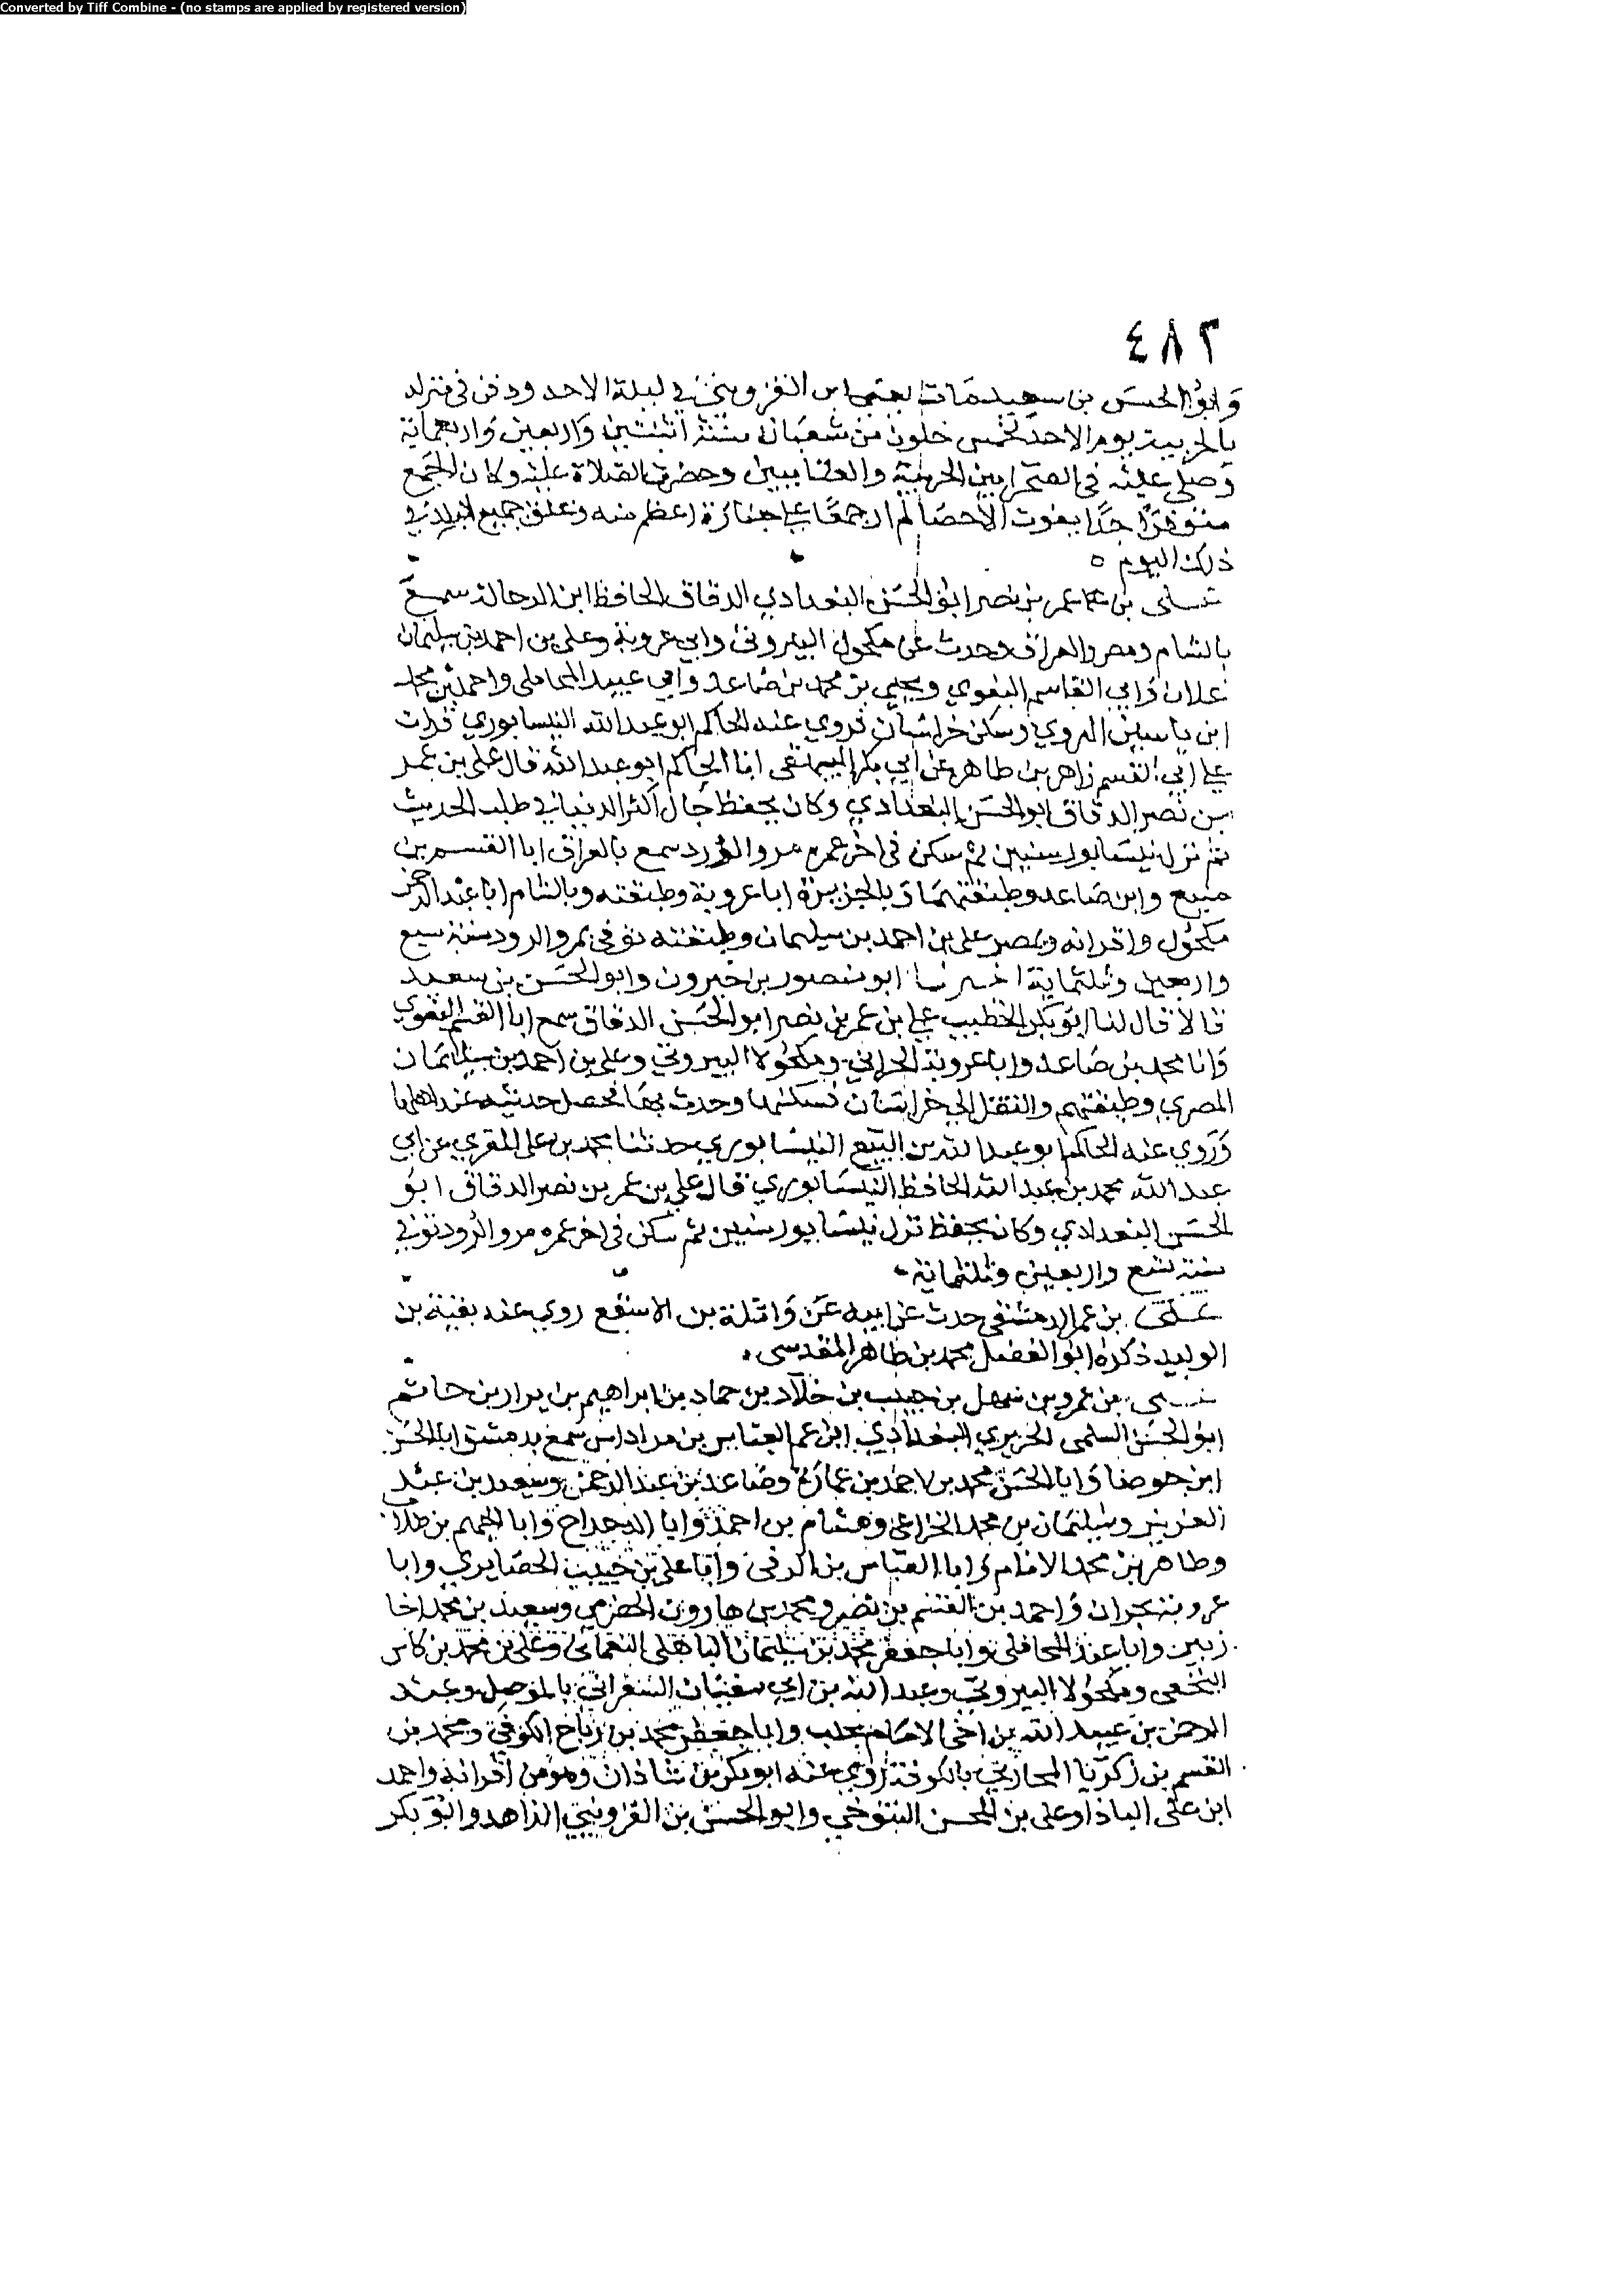 Converted by Tiff Combine - (no stamps are applied by registered version)
٤٨٢
وابو الحسن بن سعيد مات ابن القزويني في ليلة الاحد ودفن في منزله
بالحربية يوم الاحد لخمس خلون من شعبان سنة اثنتين واربعين واربعماية
وصلي عليه في الصحرا بين الحربية والعتابيين وحضرت الصلاة عليه وكان الجمع
متوفرا جدا يفوت الاحصا لم ار جمعا على جنازة اعظم منه وغلق جميع البلد في
ذلك اليوم
علي بن عمر بن نصر ابو الحسن البغدادي الدقاق الحافظ الرحالة سمع
بالشام ومصر والعراق وحدث عن مكحول البيروتي وابي عروبة وعلي بن احمد بن سليمان
علان وابي القاسم البغوي ويحيى بن محمد بن صاعد وابي عبيد المحاملي واحمد بن محمد
ابن ياسين الهروي وسكن خراسان روي عنه الحاكم ابو عبد الله النيسابوري قرات
على ابي القسم زاهر بن طاهر عن ابي بكر البيهقي انا الحاكم ابو عبد الله قال علي بن عمر
بن نصر الدقاق ابو الحسن البغدادي وكان يحفظ جال اكثر الدنيا في طلب الحديث
ثم نزل نيسابور سنين ثم سكن في اخر عمره مرو الرود سمع بالعراق ابا القسم بن
منيع وابن صاعد وطبقتهما وبالجزيرة ابا عروبة وطبقته وبالشام ابا عبد الرحمن
مكحول واقرانه وبمصر علي بن احمد بن سليمان وطبقته توفي بمرو الرود سنة سبع
واربعين وثلثماية اخبرنا ابو منصور بن خيرون وابو الحسن بن سعيد
قالا قال لنا ابو بكر الخطيب علي بن عمر بن نصر ابو الحسن الدقاق سمع ابا القسم البغوي
وابا محمد بن صاعد وابا عروبة الحراني ومكحولا البيروتي وعلي بن احمد بن سليمان
المصري وطبقتهم وانتقل الى خراسان فسكنها وحدث بها فحصل حديثه عند اهلها
وروي عنه الحاكم ابو عبد الله بن البيع النيسابوري حدثنا محمد بن علي المقري عن ابي
عبد الله محمد بن عبد الله الحافظ النيسابوري قال علي بن عمر بن نصر الدقاق ابو
الحسن البغدادي وكان يحفظ نزل نيسابور سنين ثم سكن في اخر عمره مرو الرود توفي
سنة تسع واربعين وثلثماية
علي بن عمر الدمشقي حدث عن ابيه عن واثلة بن الاسقع روي عنه بقية بن
الوليد ذكره ابو الفضل محمد بن طاهر المقدسي
علي بن عمرو بن سهل بن حبيب بن خلاد بن حماد بن ابراهيم بن بن حاتم
ابو الحسن السلمي الحريري البغدادي ابن عم العباس بن مرداس سمع بدمشق ابا الحسن
ابن جوصا وابا الحسن محمد بن احمد بن عمارة وصاعد بن عبد الرحمن وسعيد بن عبد
العزيز وسليمان بن محمد الخزاعي وهشام بن احمد وابا الدحداح وابا الجهم بن طلاب
وطاهر بن محمد الامام وابا العباس بن الزفتي وابا علي بن حبيب الحصايري وابا
عروبة بحران واحمد بن القسم بن نصر ومحمد بن هارون الحضرمي وسعيد بن محمد اخا
زبير وابا عبد المحاملي وابا جعفر محمد بن سليمان الباهلي النعماني وعلي بن محمد بن كاس
النخعي ومكحولا البيروتي وعبد الله بن ابي سفيان الشعراني بالموصل وعبد
الرحمن بن عبيد الله بن اخي الامام بحلب وابا جعفر محمد بن رباح الكوفي ومحمد بن
القسم بن زكريا المحاربي بالكوفة روي عنه ابو بكر بن شاذان وهو من اقرانه واحمد
ابن علي الباذا وعلي بن المحسن التنوخي وابو الحسن بن القزويني الزاهد وابو بكر